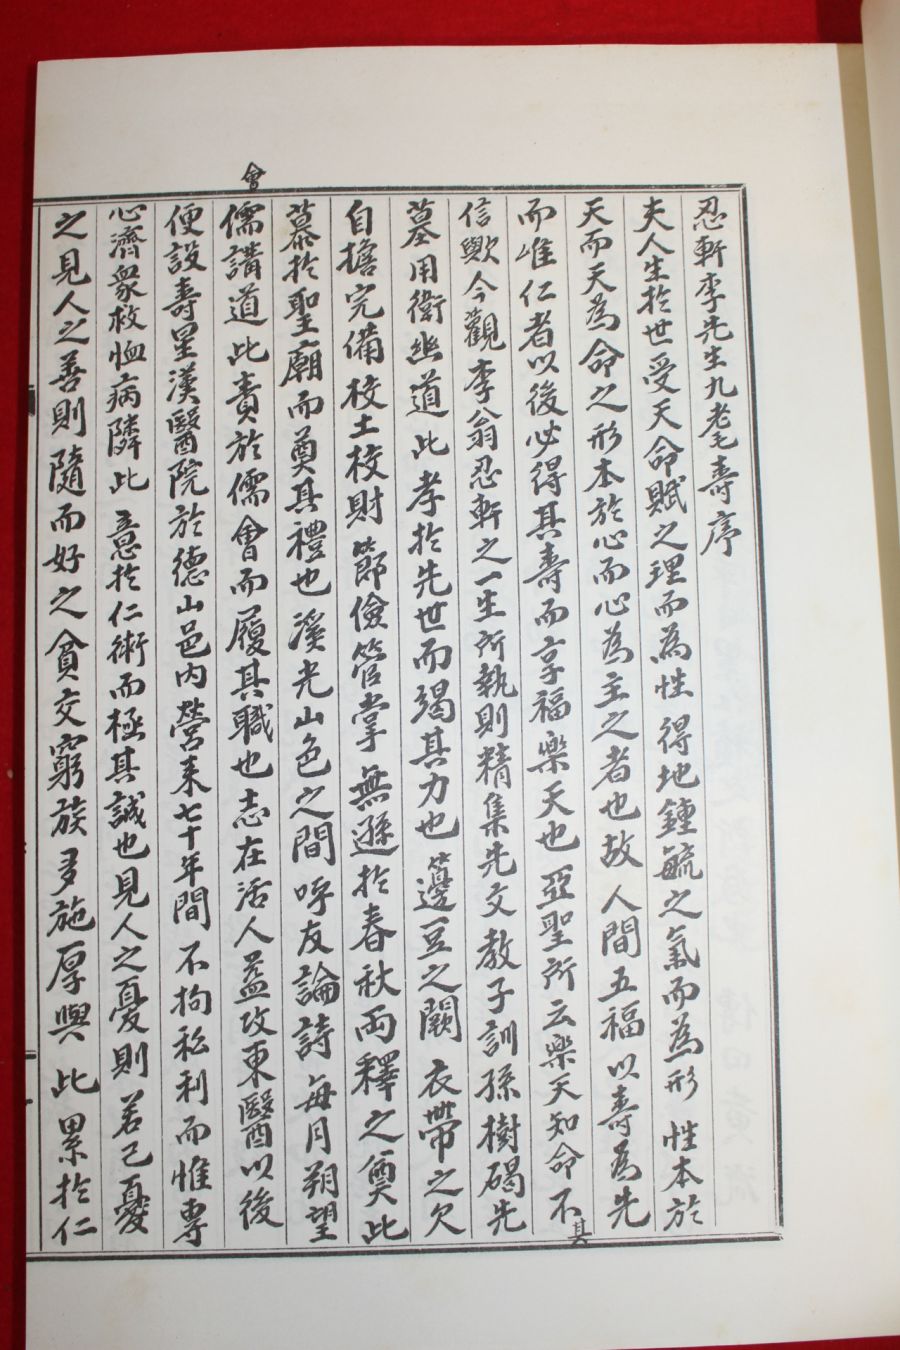 忍軒李先生九耋壽序
夫人生於世受天命賦之理而為性得地鍾毓之氣而為形性本於
天而天為命之形本於心而心為主之者也故人間五福以壽為先
而惟仁者以後必得其壽而享福樂天也亞聖所云樂天知命不其
信歟今觀李翁忍軒之一生所執則精集先文教子訓孫樹碣先
墓用衛幽道此孝於先世而竭其力也籩豆之闕衣帶之欠
自擔完備校土校財節儉管掌無遜於春秋兩釋之奠此
慕於聖廟而奠其禮也溪光山色之間呼友論詩每月朔望會
儒講道此責於儒會而履其職也志在活人益攻東醫以後
便設壽星漢醫院於德山邑内營来七十年間不拘私利而惟專
心濟衆救恤病隣此意於仁術而極其誠也見人之憂則若己憂
之見人之善則隨而好之貧交窮族多施厚與此累於仁